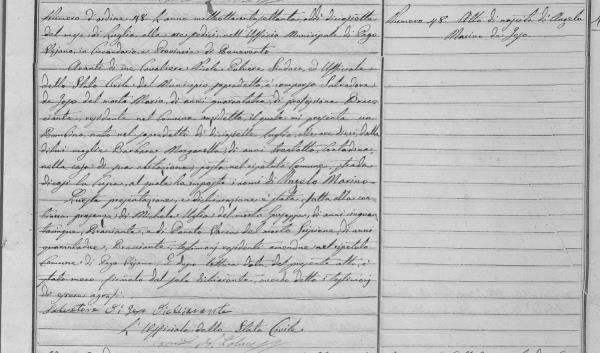 Numero d'ordine 48. L'anno mille ottocento settanta, addì diciasette
del mese di Luglio alle ore sedici nell'Ufficio Municipale di Pago
Vejano, in Circondario e Provincia di Benevento.
Avanti di me Cavaliere Polvere Sindaco, ed Uffiziale
dello Stato Civile del Municipio predetto, è comparso Salvatore
de Jeso del morto Mario, di anni quarantatre, di professione Brac
ciante, residente nel Comune anzidetto, il quale mi presenta un
Bambino, nato nel predetti dì diciasette Luglio, alle ore dieci, dalla
di lui moglie Barbara di anni trentotto, Contadina,
nella casa di sua abitazione, posta nel ripetuto Comune, strada
al quale ha imposto i nomi di Angelo Marino.
Questa presentazione, e dichiarazione è stata fatta alla con
tinua presenza di Michele del morto Giuseppe, di anni cinquan
tacinque, Bracciante, e di Donato del morto di anni
quarantadue, Bracciante, testimoni residenti amendue nel ripetuto
Comune di Pago Vejano. E dopo lettura data del presente atto, è
stato meco firmato dal solo dichiarante, avendo detto i testimoni
di essere
Salvatore Di Jeso Dichiarante
L'Uffiziale dello Stato Civile
Numero 48. Atto di nascita di Angelo
Marino di Jeso